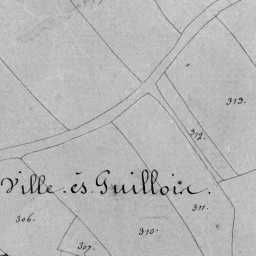 313.
312.
Ville. ès Guilloux.
311.
306.
310.
307.